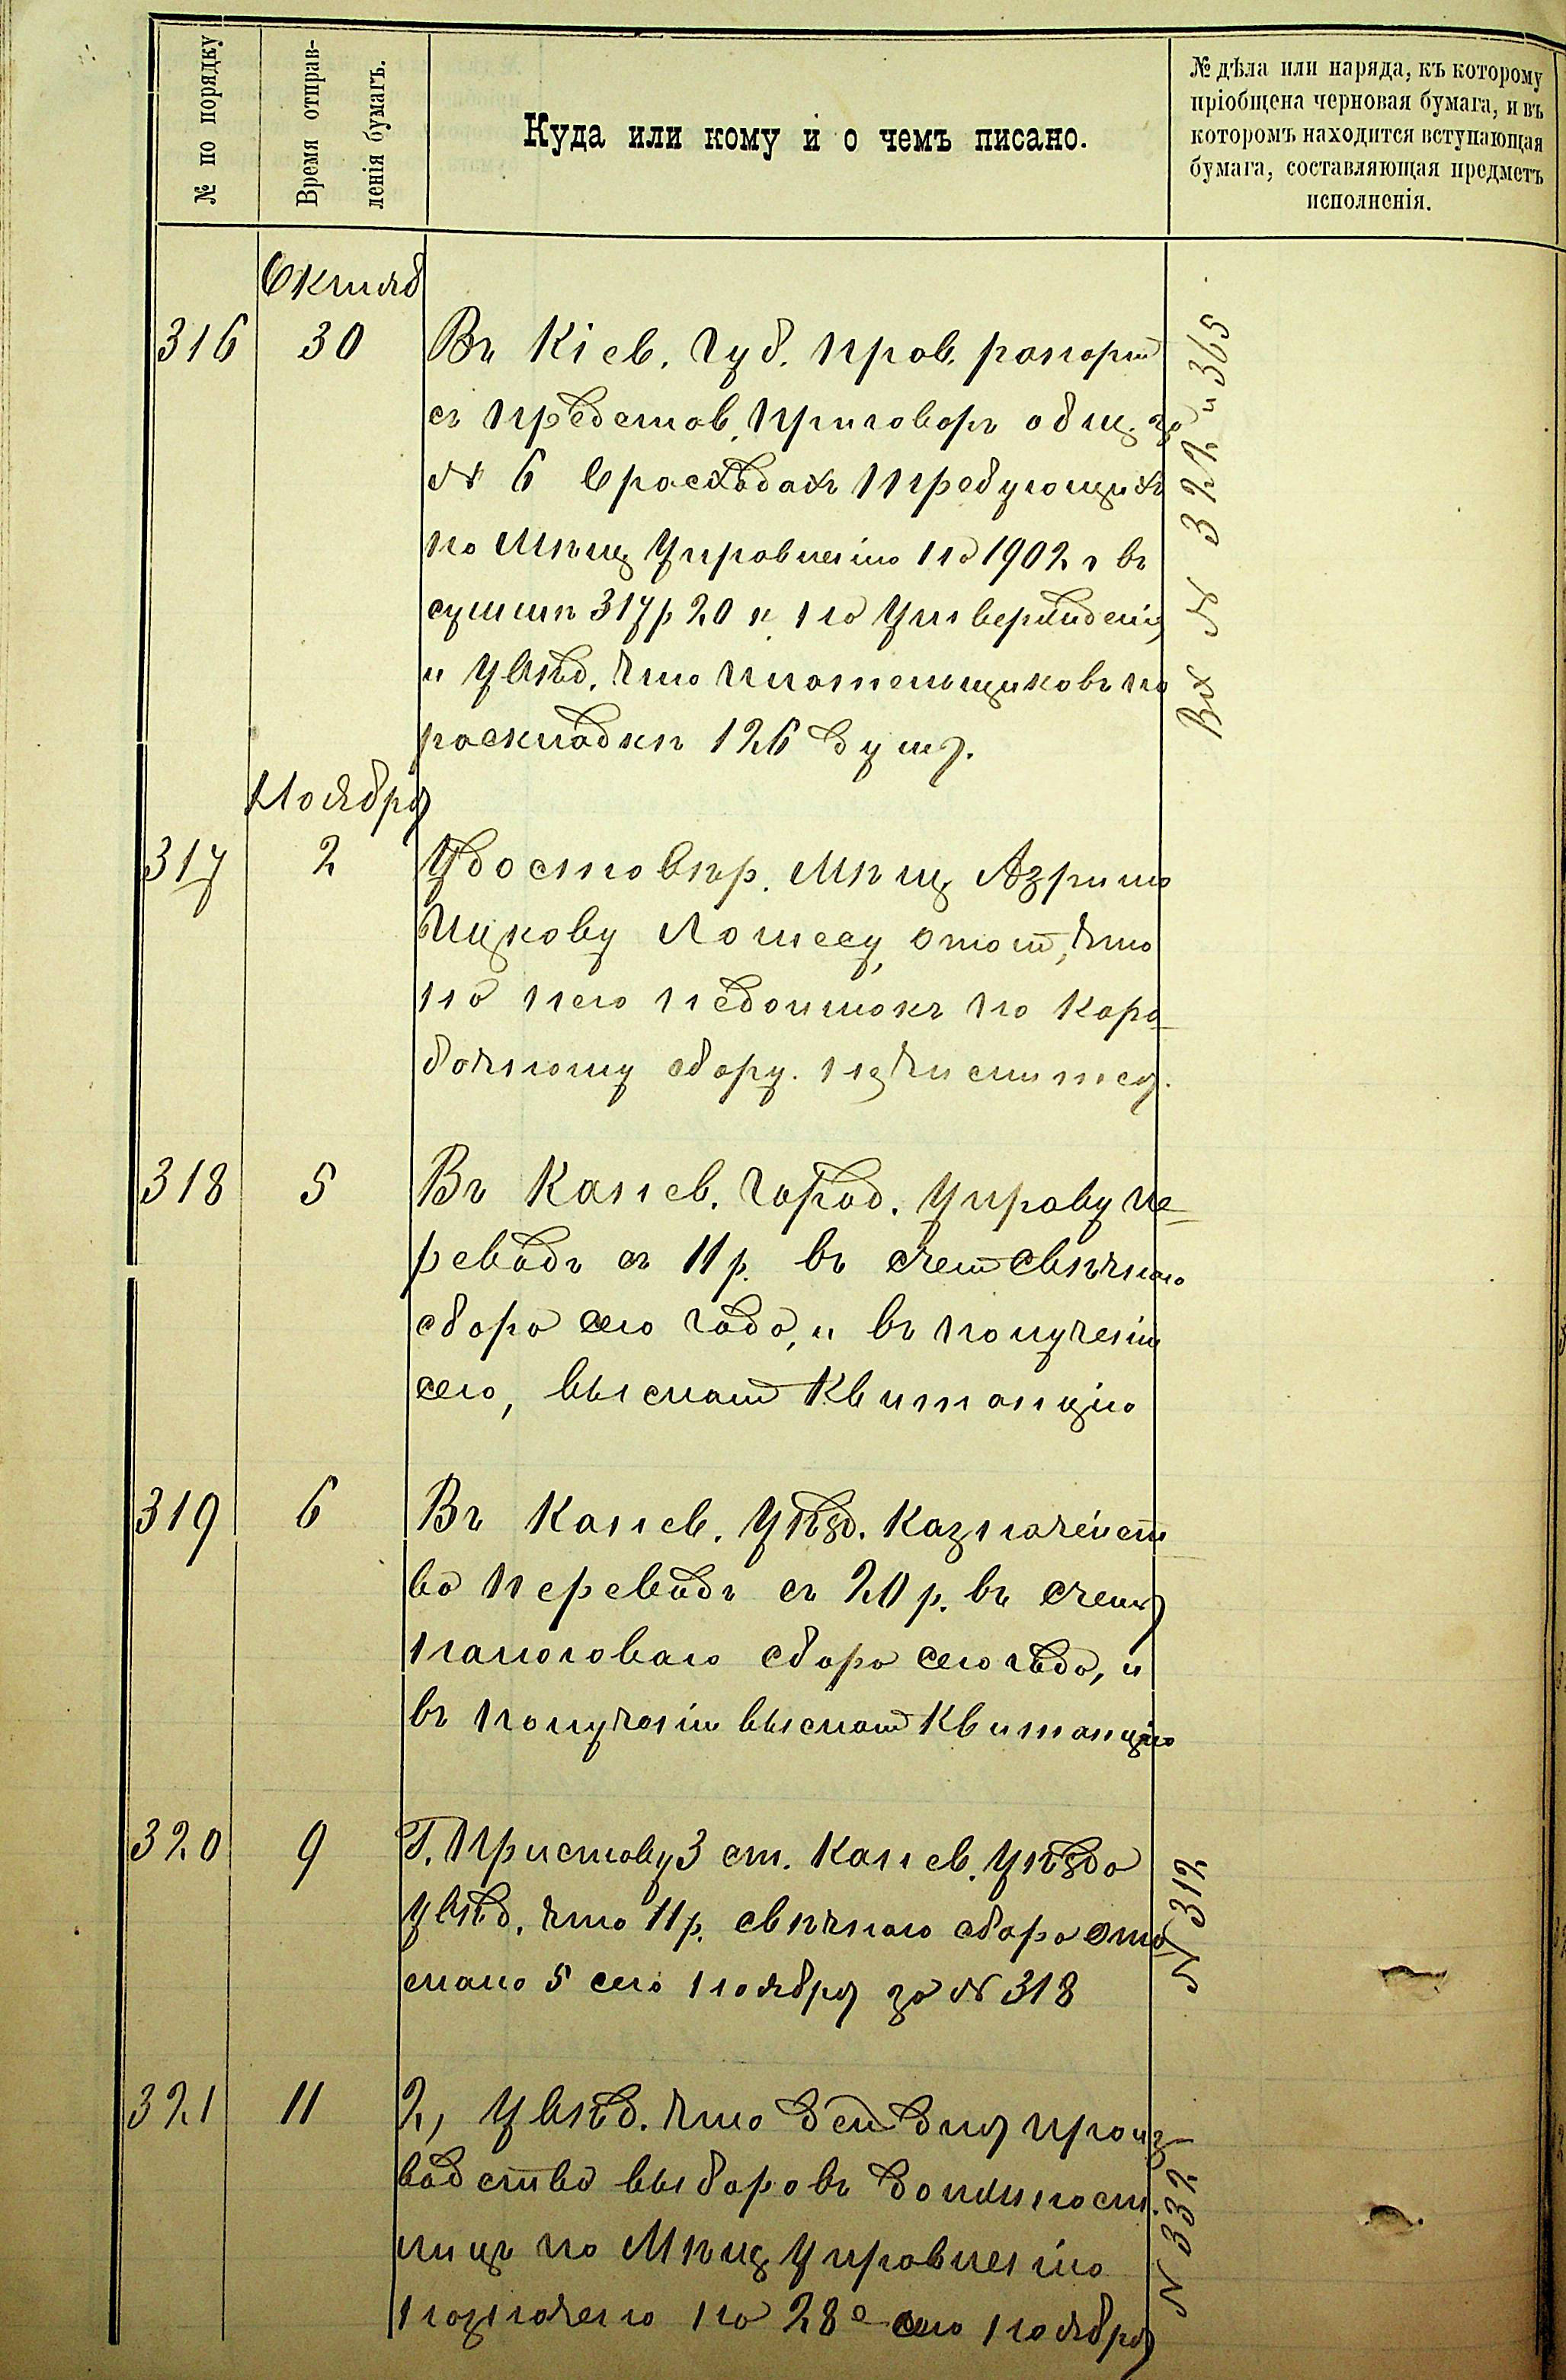 № по порядку
Время отправ-
ленія бумагъ.
Куда или кому и о чемъ писано.
№ дѣла или наряда, къ которому
пріобщена черновая бумага, и въ
которомъ находится вступающая
бумага, составляющая предметъ
исполненія.
Октяб
316 30 Въ Кіев. Губ. Прав. рапорт
съ представ. приговоръ общ. за
№ 6 О расходахъ требующихъ
по Мѣщ Управленію на 1902 г въ
суммѣ 317 р 20 к. на Утвержденія
и увѣд. что плательщиковъ по
раскладкѣ 126 душъ.
Вх № 322 и 365
Ноября
317 2 Удостовѣр. Мѣщ Азрилю
Ицкову о томъ, что
на него недоимокъ по Каро-
бочному сбору. не числится.
318 5 Въ Канев. Город. Управу пе-
реводъ съ 11 р. въ счет свѣчнаго
сбора сего года, и въ полученіи
сего, выслать Квитанцію
319 6 Въ Канев. Уѣзд. Казначейст
во переводъ съ 20 р. въ счетъ
налоговаго сбора сего года, и
въ полученіи выслать Квитанцію
320 9 Г. Приставу 3 ст. Канев. Уѣзда
увѣд. что 11 р. свѣчнаго сбора ото
слано 5 сего ноября за № 318
№ 312
321 11 увѣд. что день для произ
водство выборовъ должност.
лицъ по Мѣщ Управленію
назначено на 28е сего ноября
№ 332